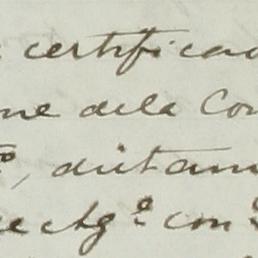 certificad
ne dela Con
, dictam
se Agᵉ con